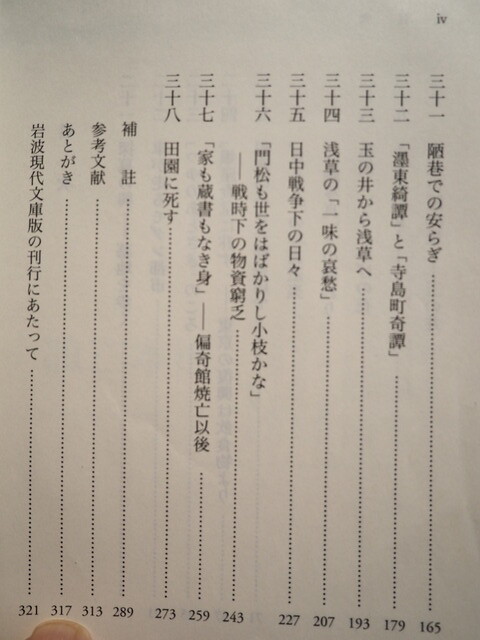 iv
三十一 陋巷での安らぎ 165
三十二 「濹東綺譚」と「寺島町奇譚」 179
三十三 玉の井から浅草へ 193
三十四 浅草の「一味の哀愁」 207
三十五 日中戦争下の日々 227
三十六 「門松も世をはばかりし小枝かな」
――戦時下の物資窮乏 243
三十七 「家も蔵書もなき身」――偏奇館焼亡以後 259
三十八 田園に死す 273
補註 289
参考文献 313
あとがき 317
岩波現代文庫版の刊行にあたって 321